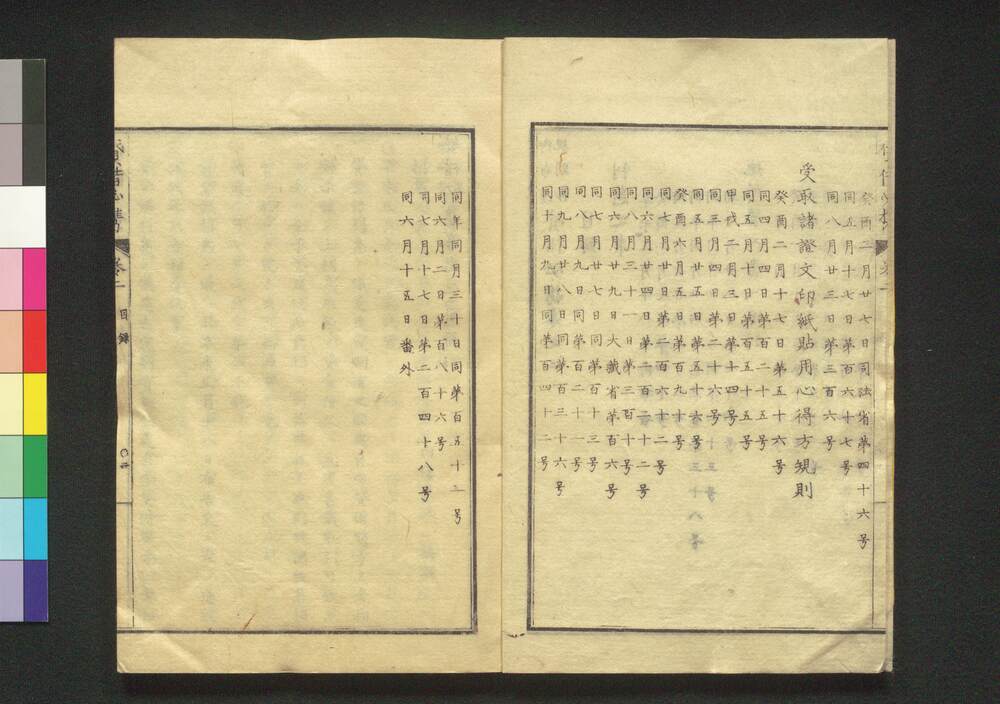 癸酉二月廿七日司法省第四十六号
同五月十七日第百六十七号
同八月廿三日第三百六号
受取諸證文印紙貼用心得方規則
癸酉二月十七日第五十六号
同四月四日第百二十五号
同五月十日第百五十五号
甲戌二月三日第十四号
同三月四日第二十六号
同五月五日第五十六号
癸酉六月五日第百九十号
同七月廿日第二百六十二号
同六月廿四日第二百二十二号
同八月三十一日第三百十号
同六月廿九日大藏省第百六号
同七月廿七日同第百十三号
同八月九日同第百二十一号
同九月廿八日同第百三十六号
同十月九日同第百四十二号
同年同月三十日同第百五十二号
同六月二日第百八十六号
同七月十七日第二百四十八号
同六月十五日番外
卷二
目錄